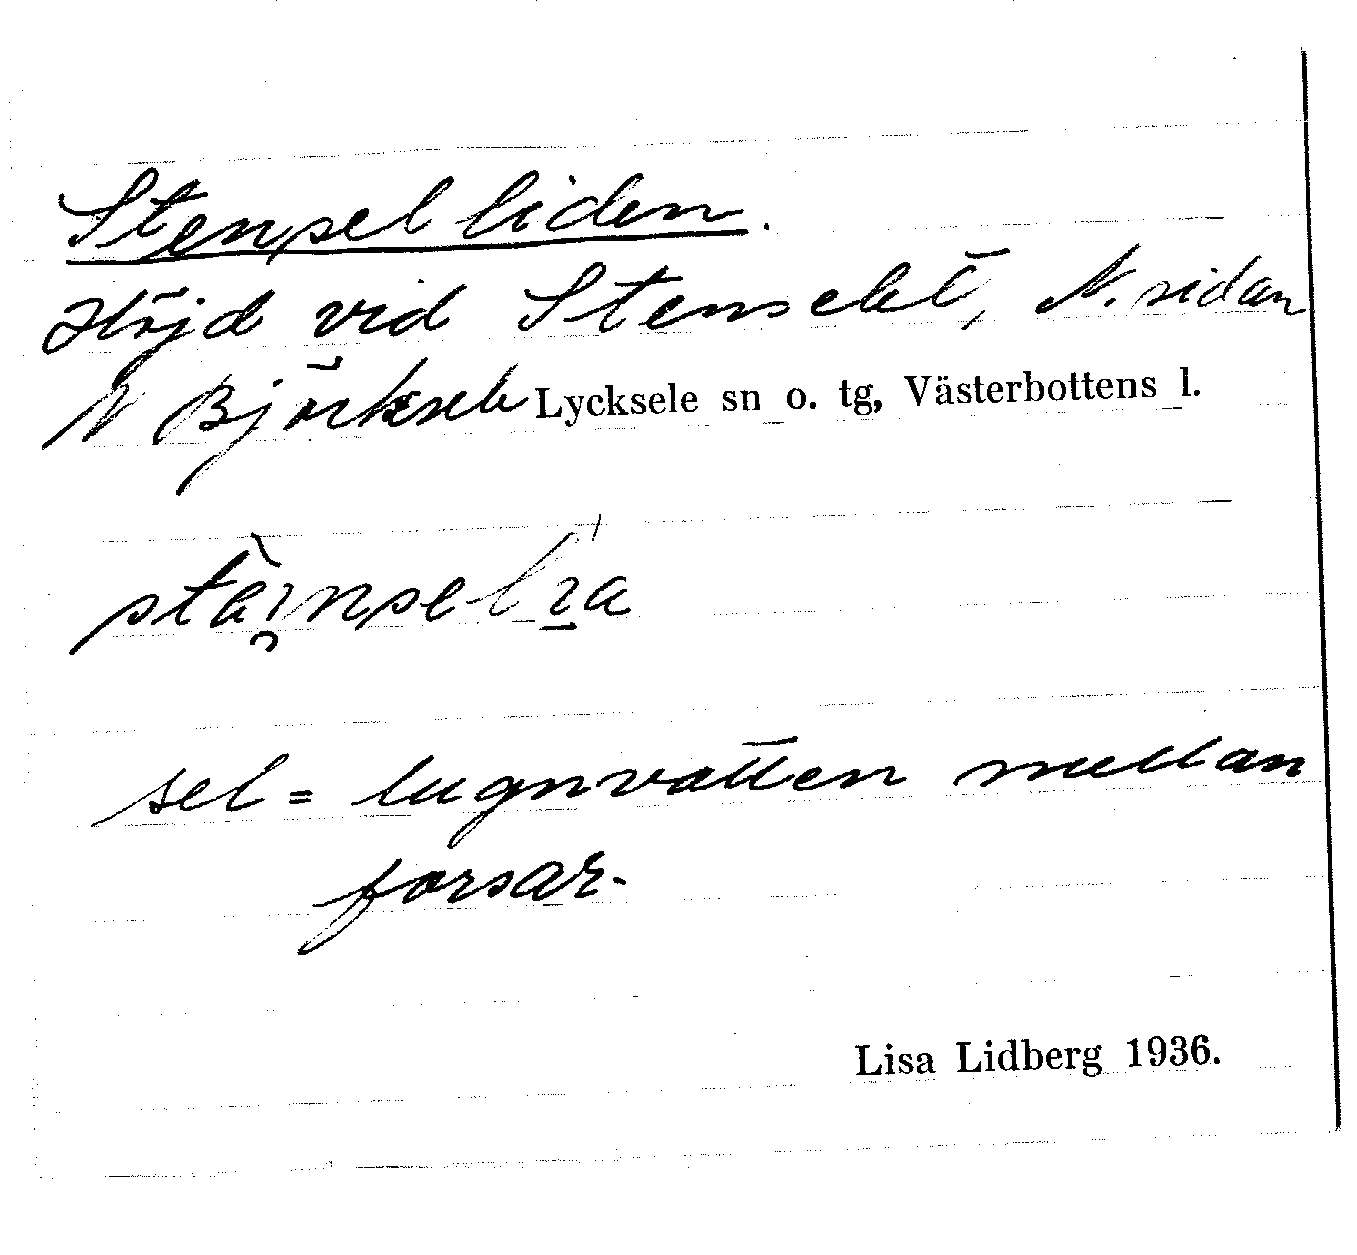 Stenselliden.
Höjd vid Stenselet, N. sidan
N Björksele Lycksele sn o. tg, Västerbottens l.
sel = lugnvatten mellan
forsar.
Lisa Lidberg 1936.